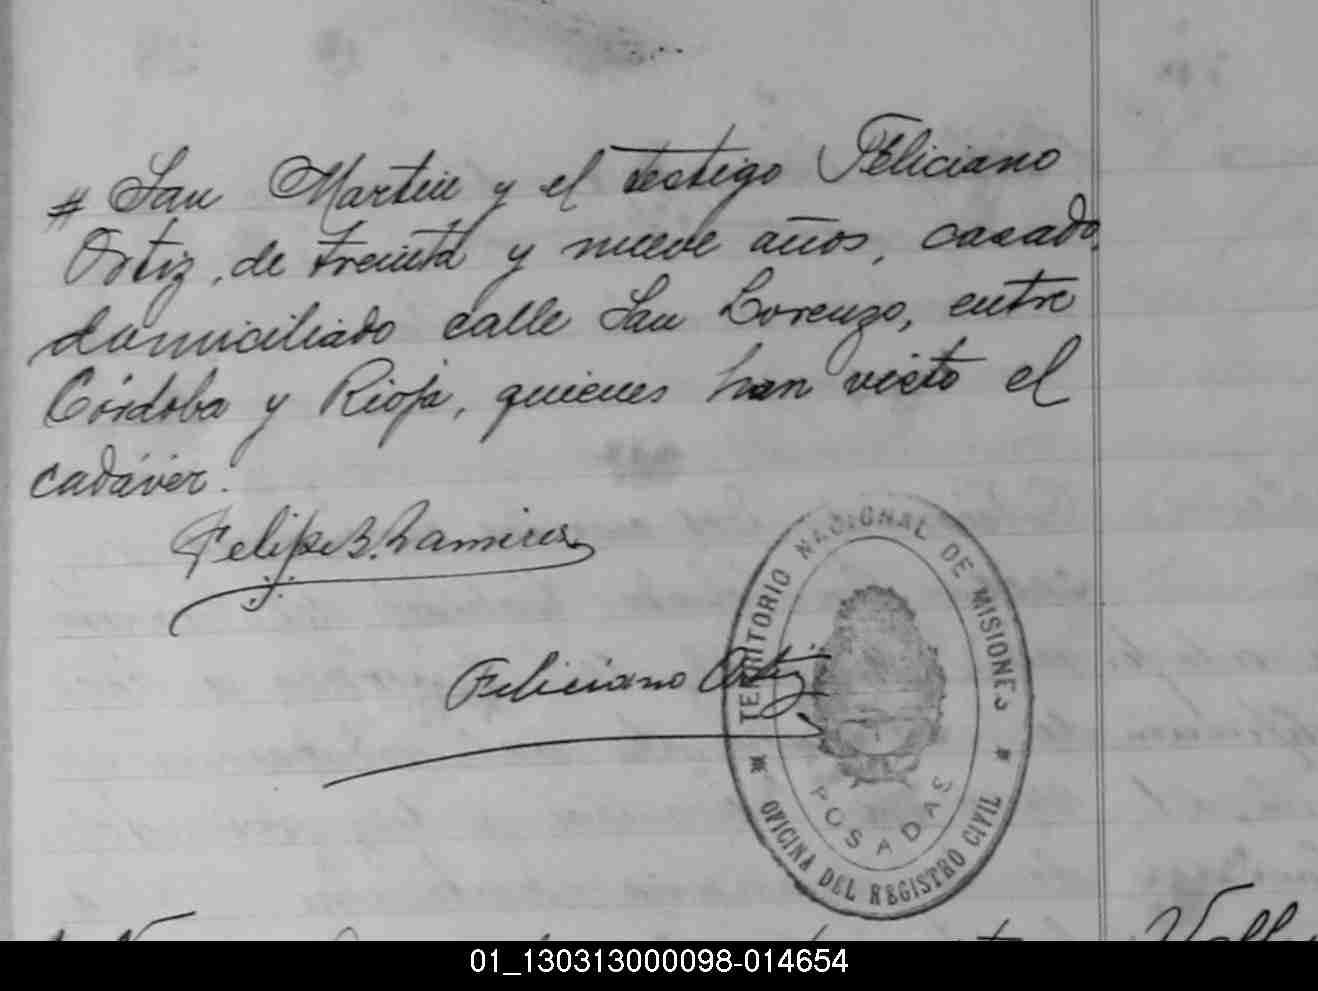 # San Martin y el testigo Feliciano
Ortiz, de treinta y nueve años, casado,
domiciliado calle San Lorenzo, entre
Córdoba y Rioja, quienes han visto el
cadáver.
Felipe B. Ramirez
Feliciano Ortiz
TERRITORIO NACIONAL DE MISIONES
POSADAS
OFICINA DEL REGISTRO CIVIL
01_130313000098-014654